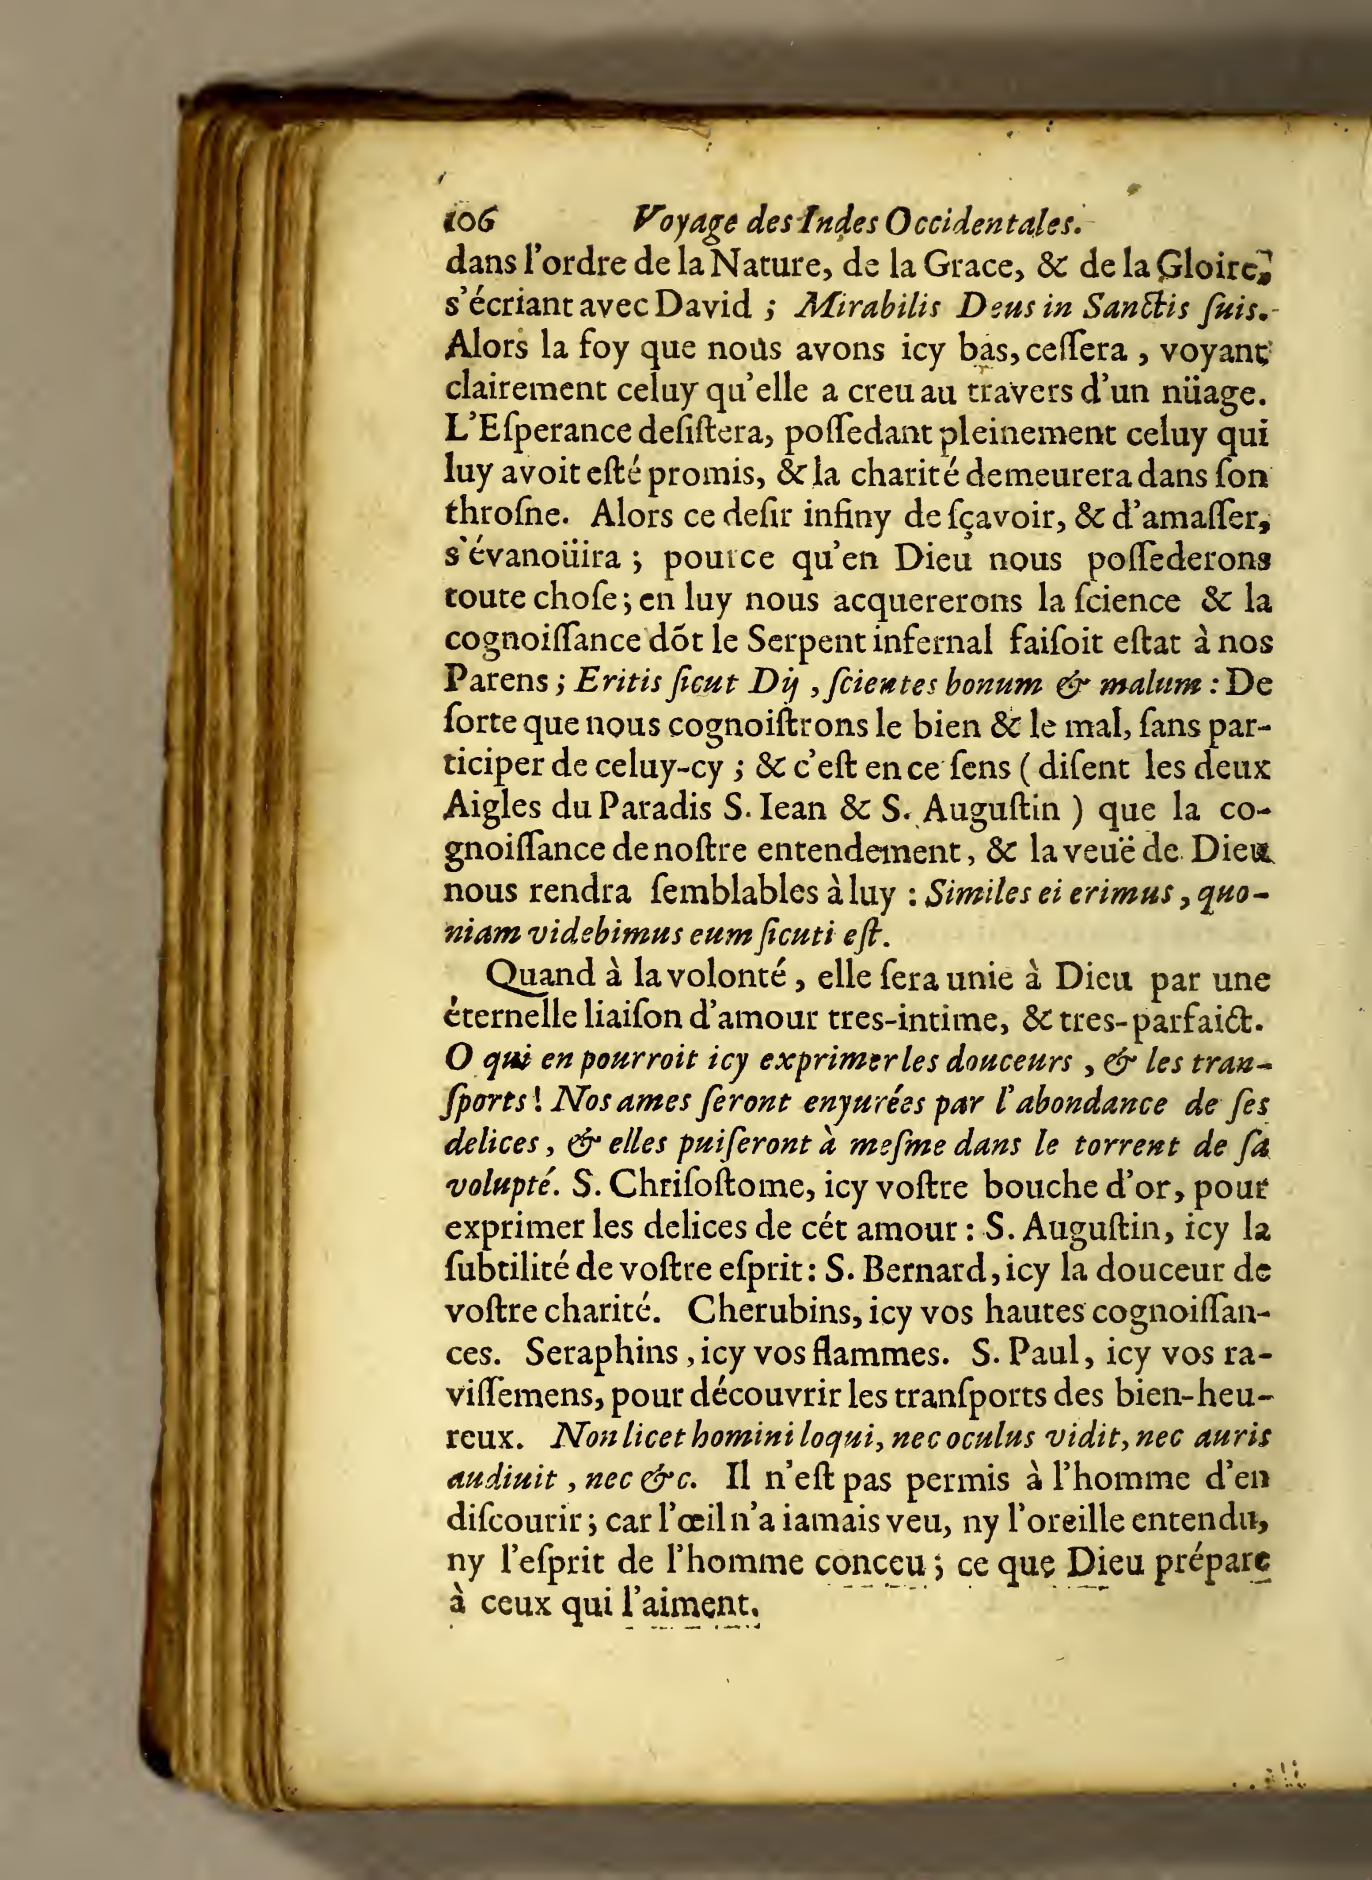 106 Voyage des Indes Occidentales.
dans l'ordre de la Nature, de la Grace, & de la Gloire,
s'écriant avec David ; Mirabilis Deus in Sanctis ſuis.
Alors la foy que nous avons icy bas, ceſſera , voyant
clairement celuy qu'elle a creu au travers d'un nüage.
L'Eſperance deſiſtera, poſſedant pleinement celuy qui
luy avoit eſté promis, & la charité demeurera dans ſon
throſne. Alors ce deſir infiny de ſçavoir, & d'amaſſer,
s'évanoüira ; pource qu'en Dieu nous poſſederons
toute choſe ; en luy nous acquererons la ſcience & la
cognoiſſance dõt le Serpent infernal faiſoit eſtat à nos
Parens ; Eritis ſicut Dij , ſcientes bonum & malum : De
ſorte que nous cognoiſtrons le bien & le mal, ſans par-
ticiper de celuy-cy ; & c'eſt en ce ſens ( diſent les deux
Aigles du Paradis S. Iean & S. Auguſtin ) que la co-
gnoiſſance de noſtre entendement, & la veuë de Dieu
nous rendra ſemblables à luy : Similes ei erimus , quo-
niam videbimus eum ſicuti eſt.
Quand à la volonté , elle ſera unie à Dieu par une
éternelle liaiſon d'amour tres-intime, & tres-parfaict.
O qui en pourroit icy exprimer les douceurs , & les tran-
ſports ! Nos ames ſeront enyurées par l'abondance de ſes
delices , & elles puiſeront à meſme dans le torrent de ſa
volupté. S. Chriſoſtome, icy voſtre bouche d'or, pour
exprimer les delices de cét amour : S. Auguſtin, icy la
ſubtilité de voſtre eſprit : S. Bernard, icy la douceur de
voſtre charité. Cherubins, icy vos hautes cognoiſſan-
ces. Seraphins , icy vos flammes. S. Paul, icy vos ra-
viſſemens, pour découvrir les tranſports des bien-heu-
reux. Non licet homini loqui, nec oculus vidit, nec auris
audiuit , nec &c. Il n'eſt pas permis à l'homme d'en
diſcourir ; car l'œil n'a iamais veu, ny l'oreille entendu,
ny l'eſprit de l'homme conceu ; ce que Dieu prépare
à ceux qui l'aiment.